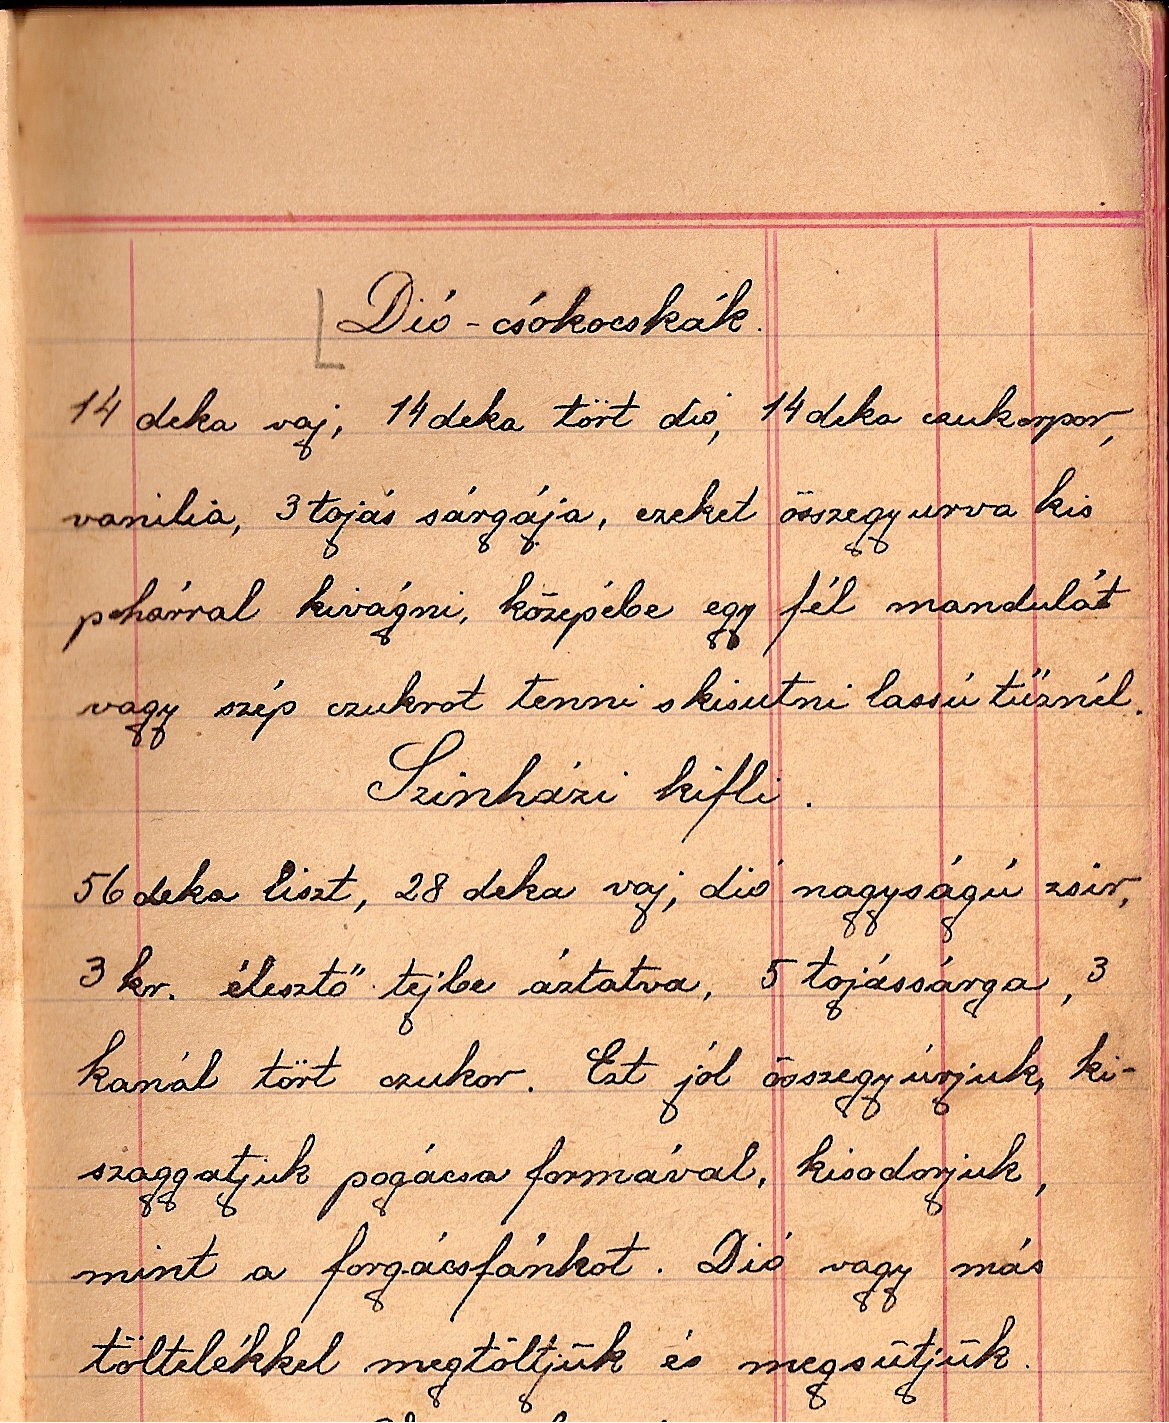 Dió-csókocskák.
14 deka vaj, 14 deka tört dió, 14 deka czukorpor,
vanilia, 3 tojás sárgája, ezeket összegyurva kis
pohárral kivágni, közepébe egy fél mandulát
vagy szép czukrot tenni s kisutni lassú tűznél.
Szinházi kifli.
56 deka liszt, 28 deka vaj, dió nagyságú zsir,
3 kr. élesztő tejbe áztatva, 5 tojássárga, 3
kanál tört czukor. Ezt jól összegyúrjuk, ki-
szaggatjuk pogácsa formával, kisodorjuk,
mint a forgácsfánkot. Dió vagy más
töltelékkel megtöltjük és megsütjük.